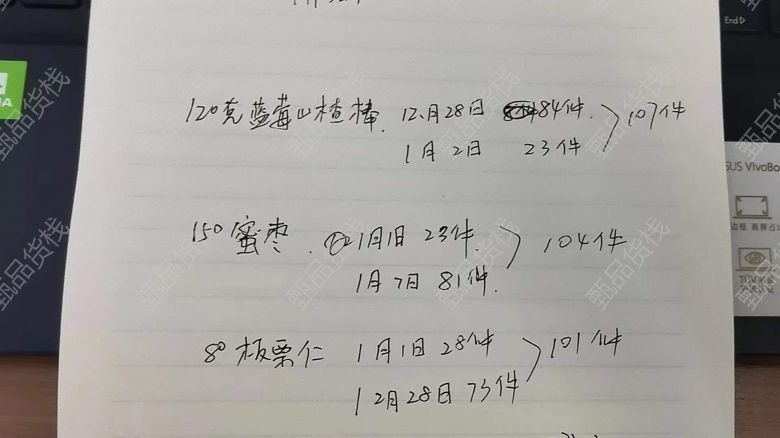 End
120克蓝莓山楂棒. 12月28日 84件. 107件
1月2日 23件
150蜜枣. 1月1日 23件. 104件
1月7日 81件.
80板栗仁 1月1日 28件 101件
12月28日 73件
SUS VivoBo
甄品货栈